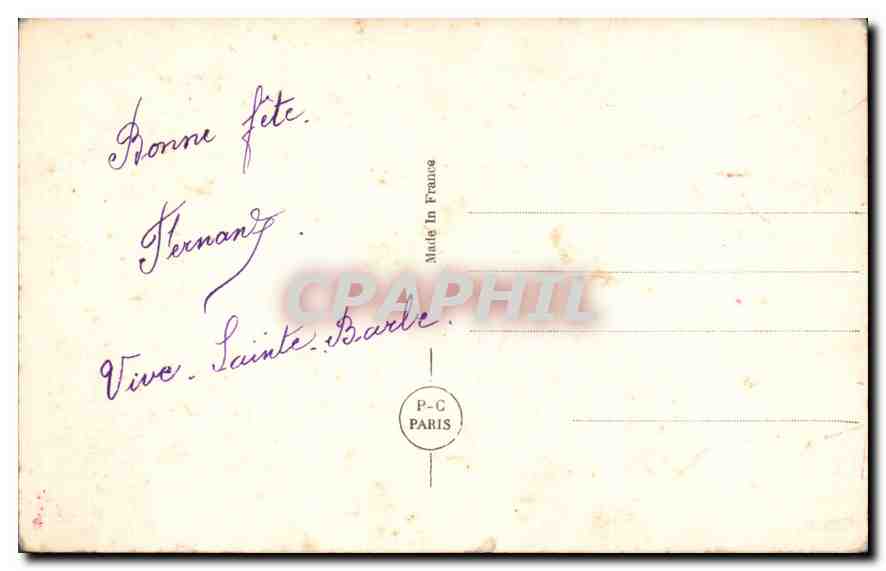 Bonne fête.
Fernand.
Vive - Sainte - Barbe.
Made In France
CPAPHIL
P-C
PARIS